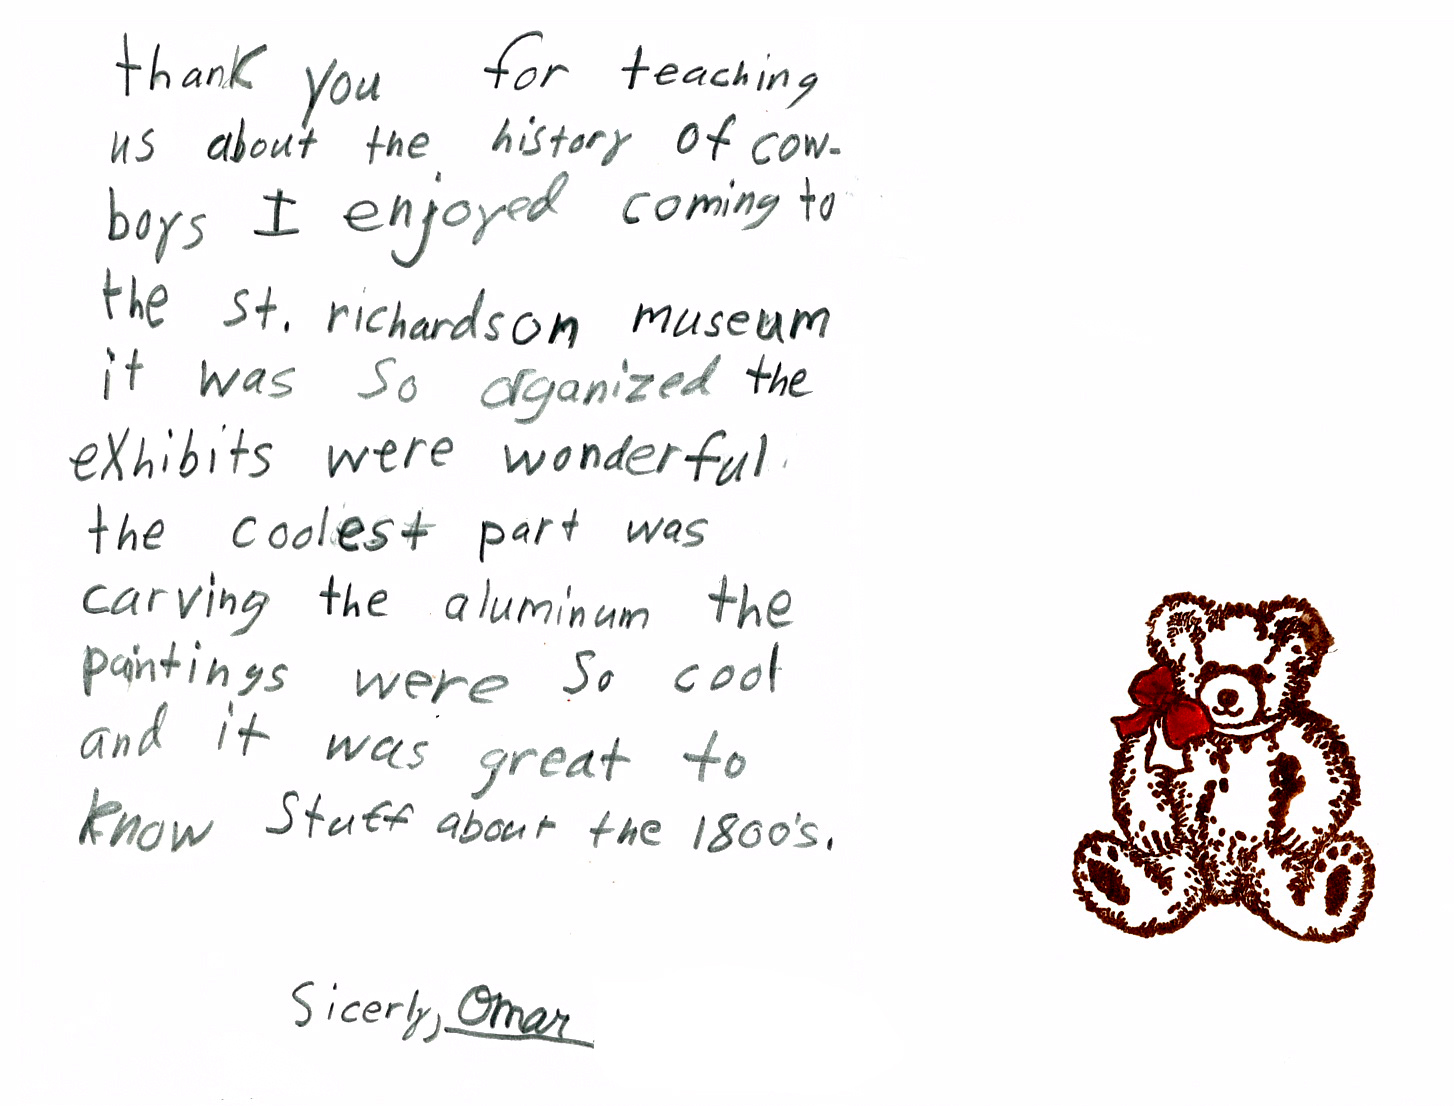 thank you for teaching
us about the history of cow-
boys I enjoyed coming to
the st. richardson museum
it was so organized the
exhibits were wonderful.
the coolest part was
carving the aluminum the
paintings were so cool
and it was great to
know stuff about the 1800's.
Sicerly, Omar